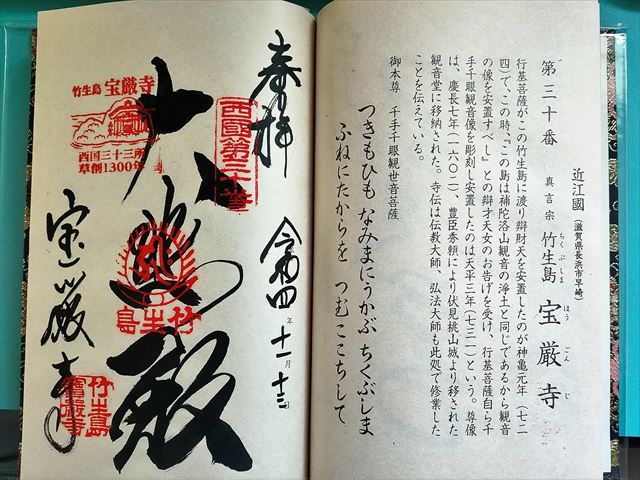 近江國（滋賀県長浜市早崎）
第三十番　真言宗　竹生島　宝厳寺
ちくぶしま　ほうごんじ
行基菩薩がこの竹生島に渡り辯財天を安置したのが神亀元年（七二
四）で、この時、『この島は補陀洛山観音の浄土と同じであるから観音
の像を安置すべし』との辯才天女のお告げを受け、行基菩薩自ら千
手千眼観音像を彫刻し安置したのは天平三年（七三一）という。尊像
は、慶長七年（一六〇二）、豊臣秀頼により伏見桃山城より移された
観音堂に移納された。寺伝は伝教大師、弘法大師も此処で修業した
ことを伝えている。
御本尊　千手千眼観世音菩薩
つきもひも　なみまにうかぶ　ちくぶしま
ふねにたからを　つむここちして
奉拝
西國第三十番
令和四年十一月十三日
大悲殿
竹生島
竹生島　宝厳寺
西国三十三所
草創1300年
宝厳寺
竹生島
寶厳寺